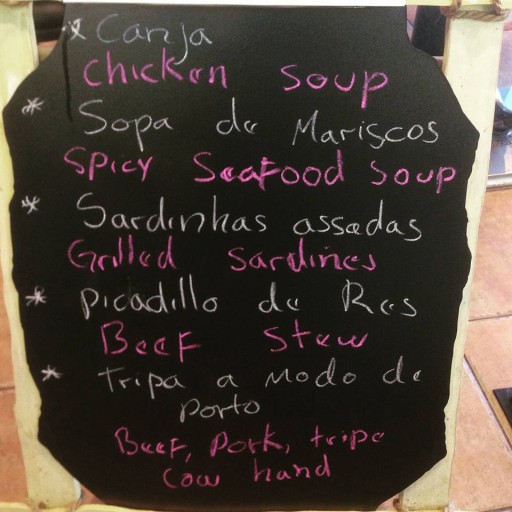 * Canja
Chicken Soup
* Sopa de Mariscos
Spicy Seafood Soup
* Sardinhas assadas
Grilled sardines
* Picadillo de Res
Beef Stew
* Tripa a Modo de
Porto
Beef, Pork, tripe
Cow hand